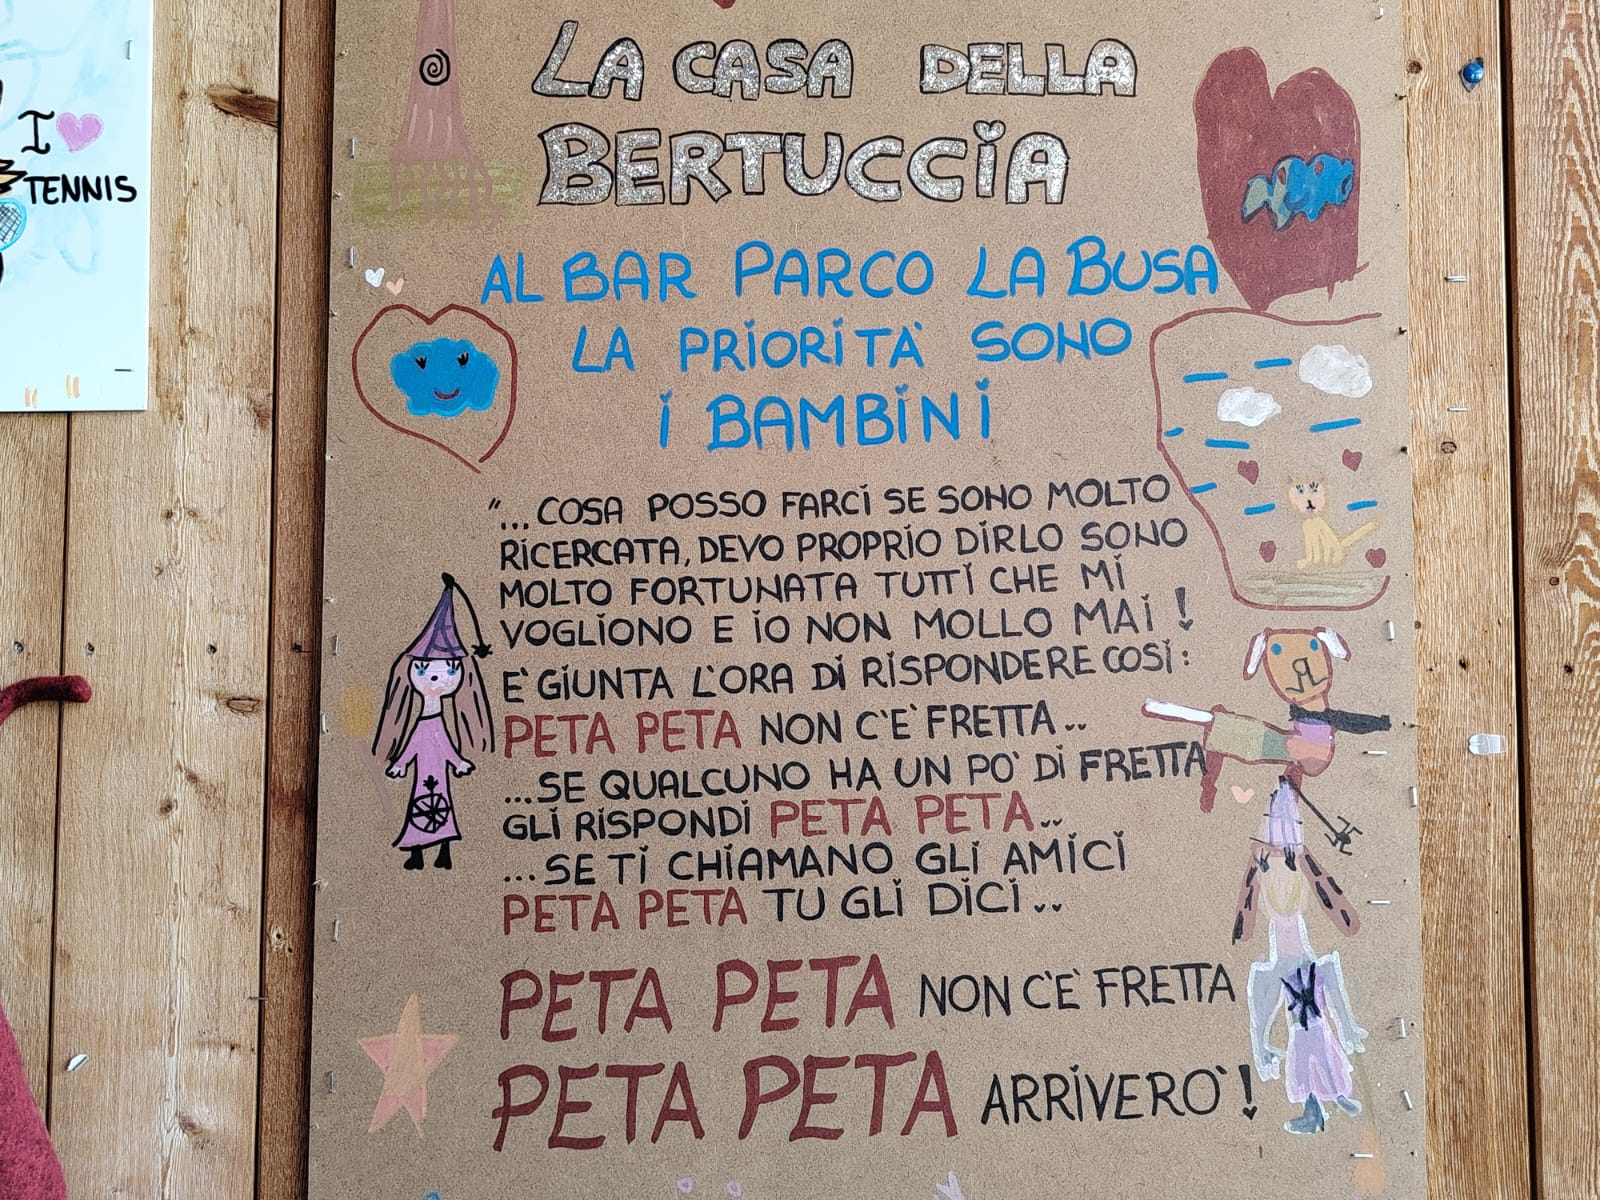 I
TENNIS
LA CASA DELLA
BERTUCCIA
AL BAR PARCO LA BUSA
LA PRIORITÀ SONO
I BAMBINI
"...COSA POSSO FARCI SE SONO MOLTO
RICERCATA, DEVO PROPRIO DIRLO SONO
MOLTO FORTUNATA TUTTI CHE MI
VOGLIONO E IO NON MOLLO MAI!
E' GIUNTA L'ORA DI RISPONDERE COSI:
PETA PETA NON C'E' FRETTA..
...SE QUALCUNO HA UN PO' DI FRETTA
GLI RISPONDI PETA PETA..
...SE TI CHIAMANO GLI AMICI
PETA PETA TU GLI DICI..
PETA PETA NON C'E' FRETTA
PETA PETA ARRIVERO'!